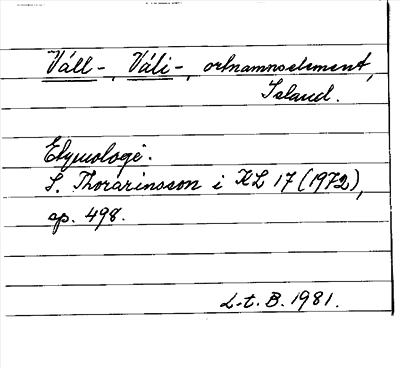 Váll-, Váli-, ortnamnselement,
Island.
Etymologi.
S. Thorarinsson i KL 17 (1972),
sp. 498.
L.t.B. 1981.